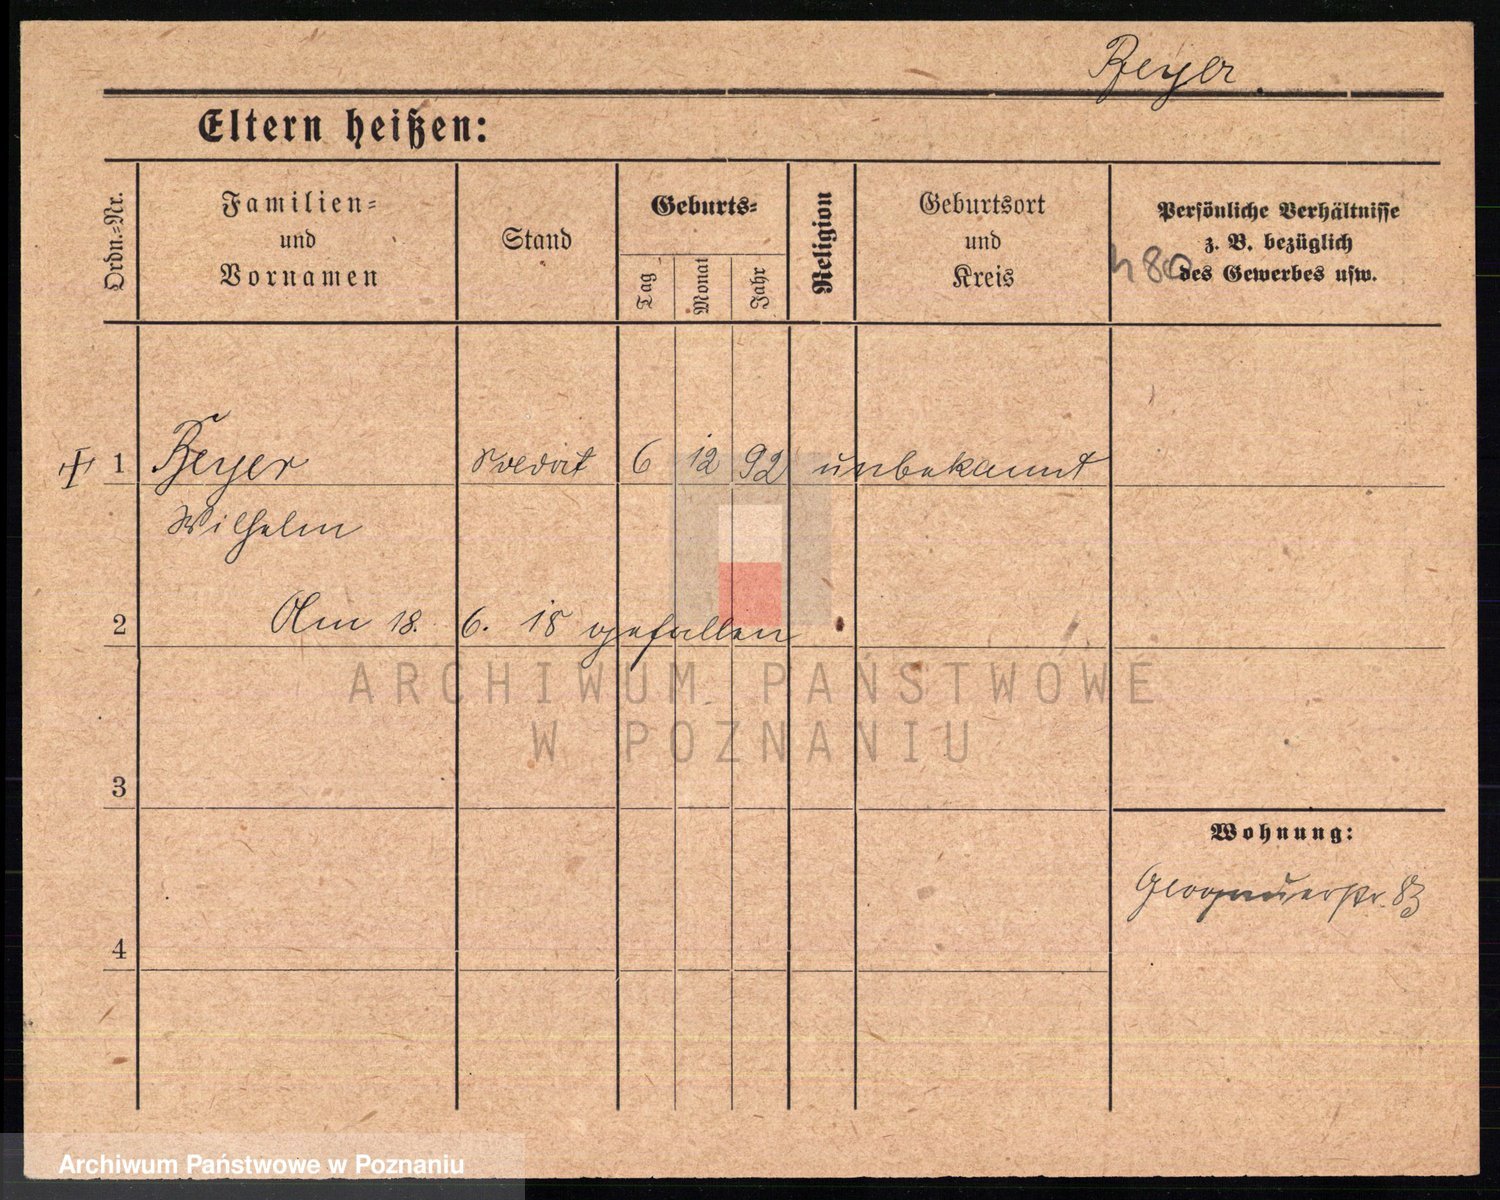 Beyer.
Eltern heißen:
Ordn.-Nr.
Familien-
und
Vornamen
Stand
Geburts-
Tag
Monat
Jahr
Religion
Geburtsort
und
Kreis
Persönliche Verhältnisse
z. B. bezüglich
des Gewerbes usw.
480
1 Beyer Soldat 6 12 92 unbekannt
Wilhelm
2 Am 18. 6. 18 gefallen
ARCHIWUM PAŃSTWOWE
W POZNANIU
3
Wohnung:
Glogauerstr. 83
4
Archiwum Państwowe w Poznaniu